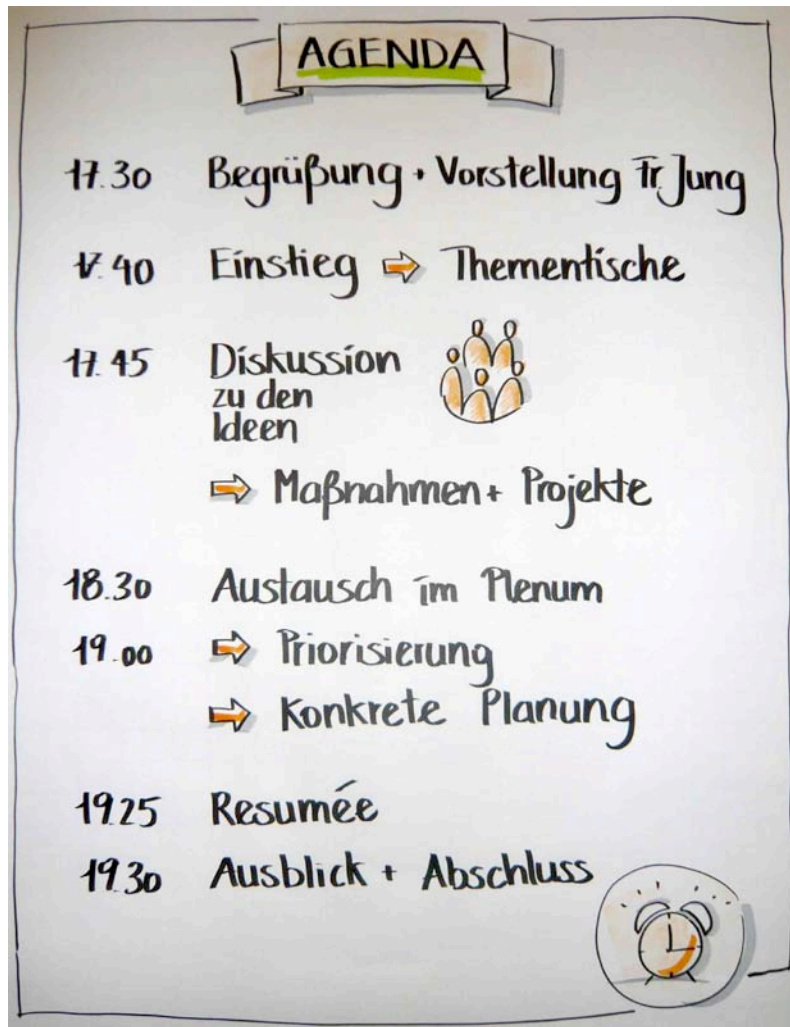 AGENDA
17.30 Begrüßung + Vorstellung Fr. Jung
17.40 Einstieg ⇨ Thementische
17.45 Diskussion
zu den
Ideen
⇨ Maßnahmen + Projekte
18.30 Austausch im Plenum
19.00 ⇨ Priorisierung
⇨ Konkrete Planung
19.25 Resumée
19.30 Ausblick + Abschluss